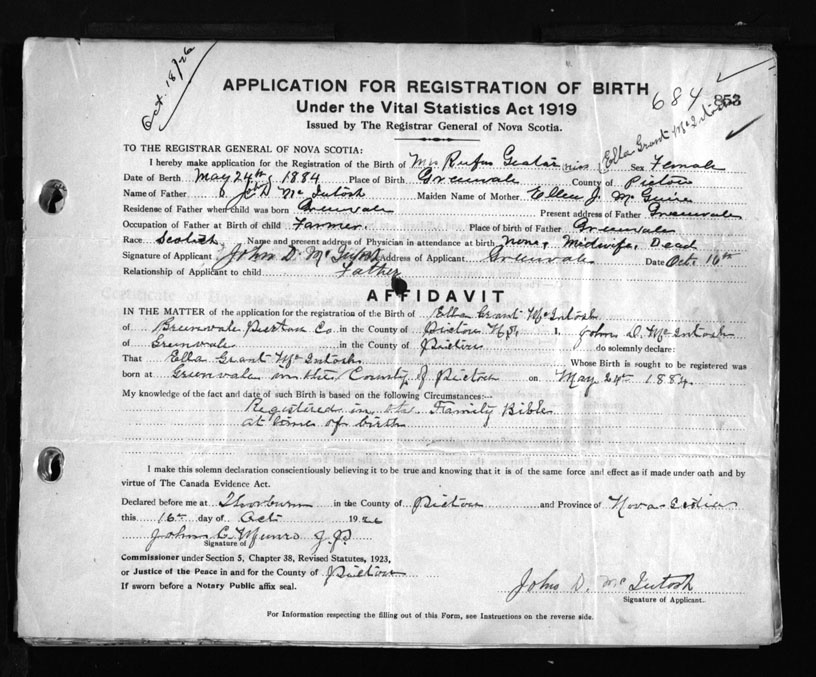 Oct. 18/26
APPLICATION FOR REGISTRATION OF BIRTH
684 853
Under the Vital Statistics Act 1919
Issued by The Registrar General of Nova Scotia.
Ella Grant McIntosh
TO THE REGISTRAR GENERAL OF NOVA SCOTIA:
I hereby make application for the Registration of the Birth of Mrs Rufus Sex Female
Date of Birth May 24th, 1884 Place of Birth Greenvale County of Pictou
Name of Father D McIntosh Maiden Name of Mother Ellen J. McGuire
Residence of Father when child was born Greenvale Present address of Father Greenvale
Occupation of Father at Birth of child Farmer. Place of birth of Father Greenvale
Race Scotch Name and present address of Physician in attendance at birth none, Midwife, Dead
Signature of Applicant John D. McIntosh Address of Applicant Greenvale Date Oct. 16th
Relationship of Applicant to child Father
AFFIDAVIT
IN THE MATTER of the application for the registration of the Birth of Ella Grant McIntosh
of Greenvale Pictou Co. in the County of Pictou N.S. I, John D. McIntosh
of Greenvale in the County of Pictou do solemnly declare:
That Ella Grant McIntosh Whose Birth is sought to be registered was
born at Greenvale in the County of Pictou on May 24th 1884.
My knowledge of the fact and date of such Birth is based on the following Circumstances:—
Registered in the Family Bible
at time of birth
I make this solemn declaration conscientiously believing it to be true and knowing that it is of the same force and effect as if made under oath and by
virtue of The Canada Evidence Act.
Declared before me at Thorburn in the County of Pictou and Province of Nova Scotia
this 16th day of Oct 1926
John C. Munro J.P.
Signature of
Commissioner under Section 5, Chapter 38, Revised Statutes, 1923,
or Justice of the Peace in and for the County of Pictou
If sworn before a Notary Public affix seal.
John D. McIntosh
Signature of Applicant.
For Information respecting the filling out of this Form, see Instructions on the reverse side.